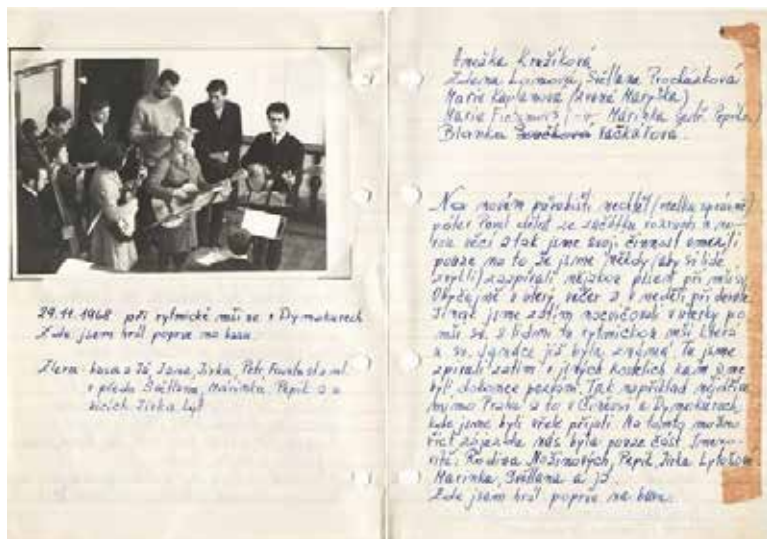 29.11.1968 při rytmické mši sv. v Dymokurech
Zde jsem hrál poprvé na basu.
Zleva: basa a Já, Jana, Jirka, Petr,
v předu Světlana, Marinka, Pepík a u
bicích Jirka Lyt
Anežka Kružíková
Zdena, Světlana Procházková
Marie Kaplanová (zvaná Maryška)
Marie, Marinka (sestř. Pepíka)
Blanka Vačkářová
Na novém působišti nechtěl (velká správně)
páter Pavel dělat ze začátku rozruch a
věcí a tak jsme svojí činnost omezili
pouze na to že jsme někdy (aby si lidé
zvykli) zazpívali nějakou píseň při mši sv.
Obyčejně v úterý večer a v neděli při deváté.
Jinak jsme zatím nacvičovali v úterky po
mši sv. s lidmi tu rytmickou mši která
u sv. Ignáce již byla známá. Tu jsme
zpívali zatím v jiných kostelích kam jsme
byli dokonce pozváni. Tak například nejdříve
mimo Prahu a to v Činěvsi a Dymokurech
kde jsme byli vřele přijati. Na tomto možno
říct zájezdu nás byla pouze část. Jmeno-
vitě: Rodina Nožinových, Pepík, Jirka
Marinka, Světlana a já.
Zde jsem hrál poprvé na basu.